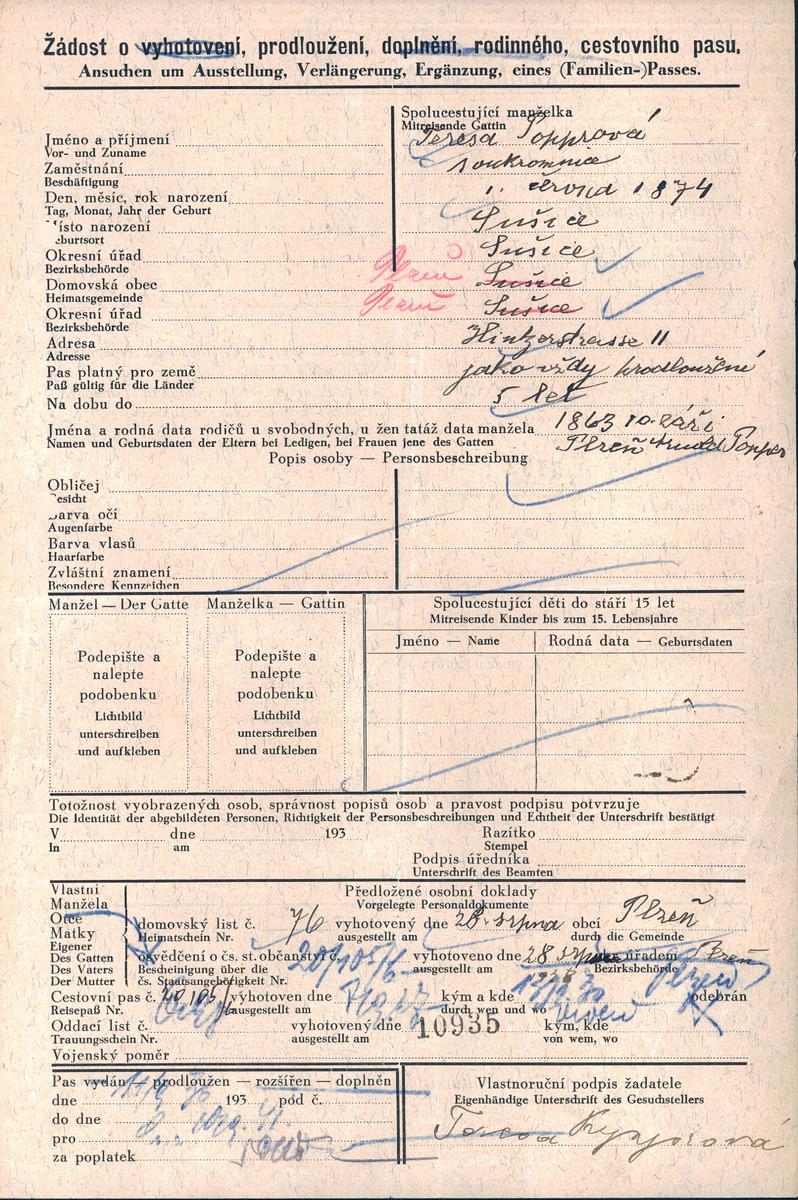 Žádost o vyhotovení, prodloužení, doplnění, rodinného, cestovního pasu.
Ansuchen um Ausstellung, Verlängerung, Ergänzung, eines (Familien-)Passes.
Spolucestující manželka
Mitreisende Gattin
Jméno a příjmení Teresa Popprová
Vor- und Zuname
Zaměstnání soukromnice
Beschäftigung
Den, měsíc, rok narození 1874
Tag, Monat, Jahr der Geburt
ísto narození Sušice
eburtsort
Okresní úřad Sušice
Bezirksbehörde
Domovská obec Plzeň Sušice
Heimatsgemeinde
Okresní úřad Plzeň Sušice
Bezirksbehörde
Adresa Hintzerstrasse 11
Adresse
Pas platný pro země jako vždy
Paß gültig für die Länder
Na dobu do 5 let
Jména a rodná data rodičů u svobodných, u žen tatáž data manžela 1863 10. září
Namen und Geburtsdaten der Eltern bei Ledigen, bei Frauen jene des Gatten Plzeň Arnold Popper
Popis osoby — Personsbeschreibung
Obličej
esicht
arva očí
Augenfarbe
Barva vlasů
Haarfarbe
Zvláštní znamení
Besondere Kennzeichen
Manžel — Der Gatte Manželka — Gattin
Podepište a nalepte podobenku
Lichtbild unterschreiben und aufkleben
Podepište a nalepte podobenku
Lichtbild unterschreiben und aufkleben
Spolucestující děti do stáří 15 let
Mitreisende Kinder bis zum 15. Lebensjahre
Jméno — Name Rodná data — Geburtsdaten
Totožnost vyobrazených osob, správnost popisů osob a pravost podpisu potvrzuje
Die Identität der abgebildeten Personen, Richtigkeit der Personsbeschreibungen und Echtheit der Unterschrift bestätigt
V dne 193 Razítko
In am Stempel
Podpis úředníka
Unterschrift des Beamten
Vlastní
Manžela
Otce
Matky
Eigener
Des Gatten
Des Vaters
Der Mutter
Předložené osobní doklady
Vorgelegte Personaldokumente
domovský list č. 76 vyhotovený dne 28. srpna obcí Plzeň
Heimatschein Nr. ausgestellt am durch die Gemeinde
osvědčení o čs. st. občanství č. 20/105/6 vyhotoveno dne 28 srpna úřadem Plzeň
Bescheinigung über die čs. Staatsangehörigkeit Nr. ausgestellt am Bezirksbehörde
Cestovní pas č. vyhotoven dne kým a kde odebrán
Reisepaß Nr. ausgestellt am durch wen und wo
Oddací list č. vyhotovený dne 10935 kým, kde
Trauungsschein Nr. ausgestellt am von wem, wo
Vojenský poměr
Pas vydán — prodloužen — rozšířen — doplněn
dne 193 pod č.
do dne
pro
za poplatek
Vlastnoruční podpis žadatele
Eigenhändige Unterschrift des Gesuchstellers
Teresa Popprová